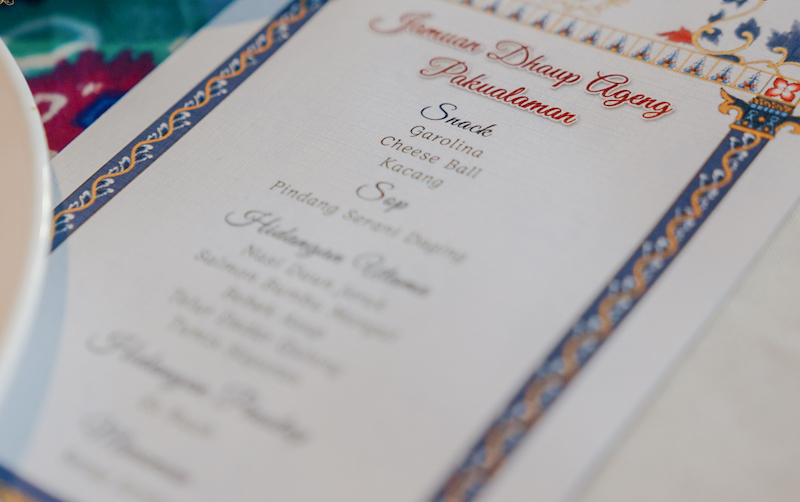 Jamuan Dhaup Ageng
Pakualaman
Snack
Garolina
Cheese Ball
Kacang
Sop
Pindang Serani Daging
Hidangan Utama
Nasi Daun Jeruk
Salmon Bambu
Bebek
Telur Dadar
Hidangan Penutup